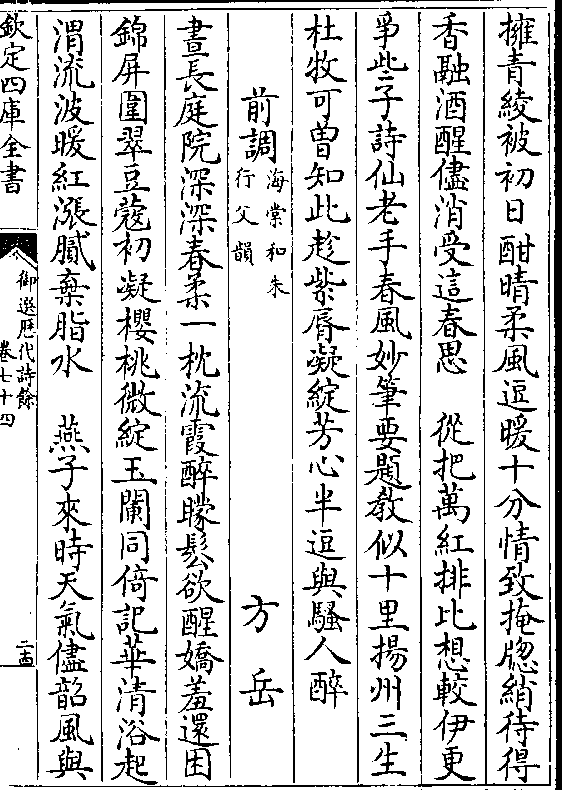 擁青綾被初日酣晴柔風逗暖十分情致掩牕綃待得
香融酒醒儘消受這春思　從把萬紅排比想較伊更
爭些子詩仙老手春風妙筆要題教似十里揚州三生
杜牧可曽知此趁紫脣凝綻芳心半逗與騷人醉
前調海棠和朱行父韻　方岳
晝長庭院深深春柔一枕流霞醉矇鬆欲醒嬌羞還困
錦屏圍翠豆蔻初凝櫻桃微綻玉闌同倚記華清浴起
渭流波暖紅漲膩棄脂水　燕子來時天氣儘韶風與
欽定四庫全書
御選歷代詩餘
卷七十四
二十四